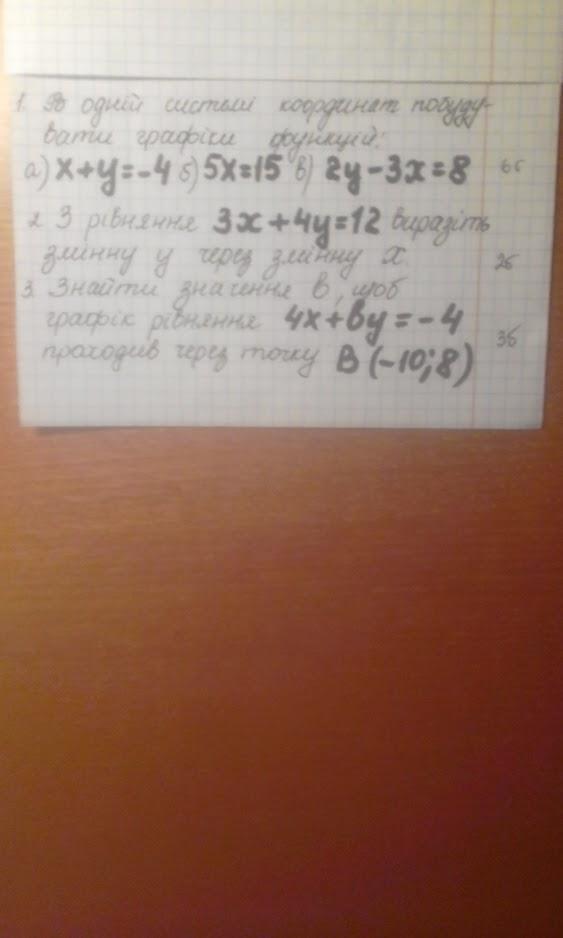 1. В одній системі координат побуду-
вати графіки функцій:
а) x+y=-4 б) 5x=15 в) 2y-3x=8 6б
2. З рівняння 3x+4y=12 виразіть
змінну y через змінну x. 2б
3. Знайти значення в, щоб
графік рівняння 4x+вy=-4 3б
проходив через точку B(-10;8)